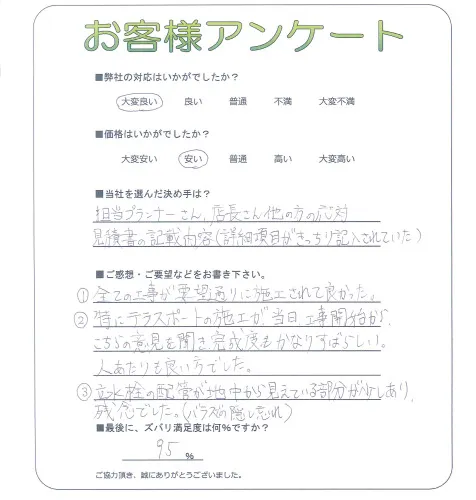 お客様アンケート
■弊社の対応はいかがでしたか？
大変良い 良い 普通 不満 大変不満
■価格はいかがでしたか？
大変安い 安い 普通 高い 大変高い
■当社を選んだ決め手は？
担当プランナーさん，店長さん他の方の応対
見積書の記載内容(詳細項目がきっちり記入されていた)
■ご感想・ご要望などをお書き下さい。
① 全ての工事が要望通りに施工されて良かった。
② 特にテラスポートの施工が当日，工事開始から，
こちらの意見を聞き完成度もかなりすばらしい。
人あたりも良い方でした。
③ 立水栓の配管が地中から見えている部分が少しあり，
残念でした。(バラスの隠し忘れ)
■最後に、ズバリ満足度は何％ですか？
95 %
ご協力頂き、誠にありがとうございました。